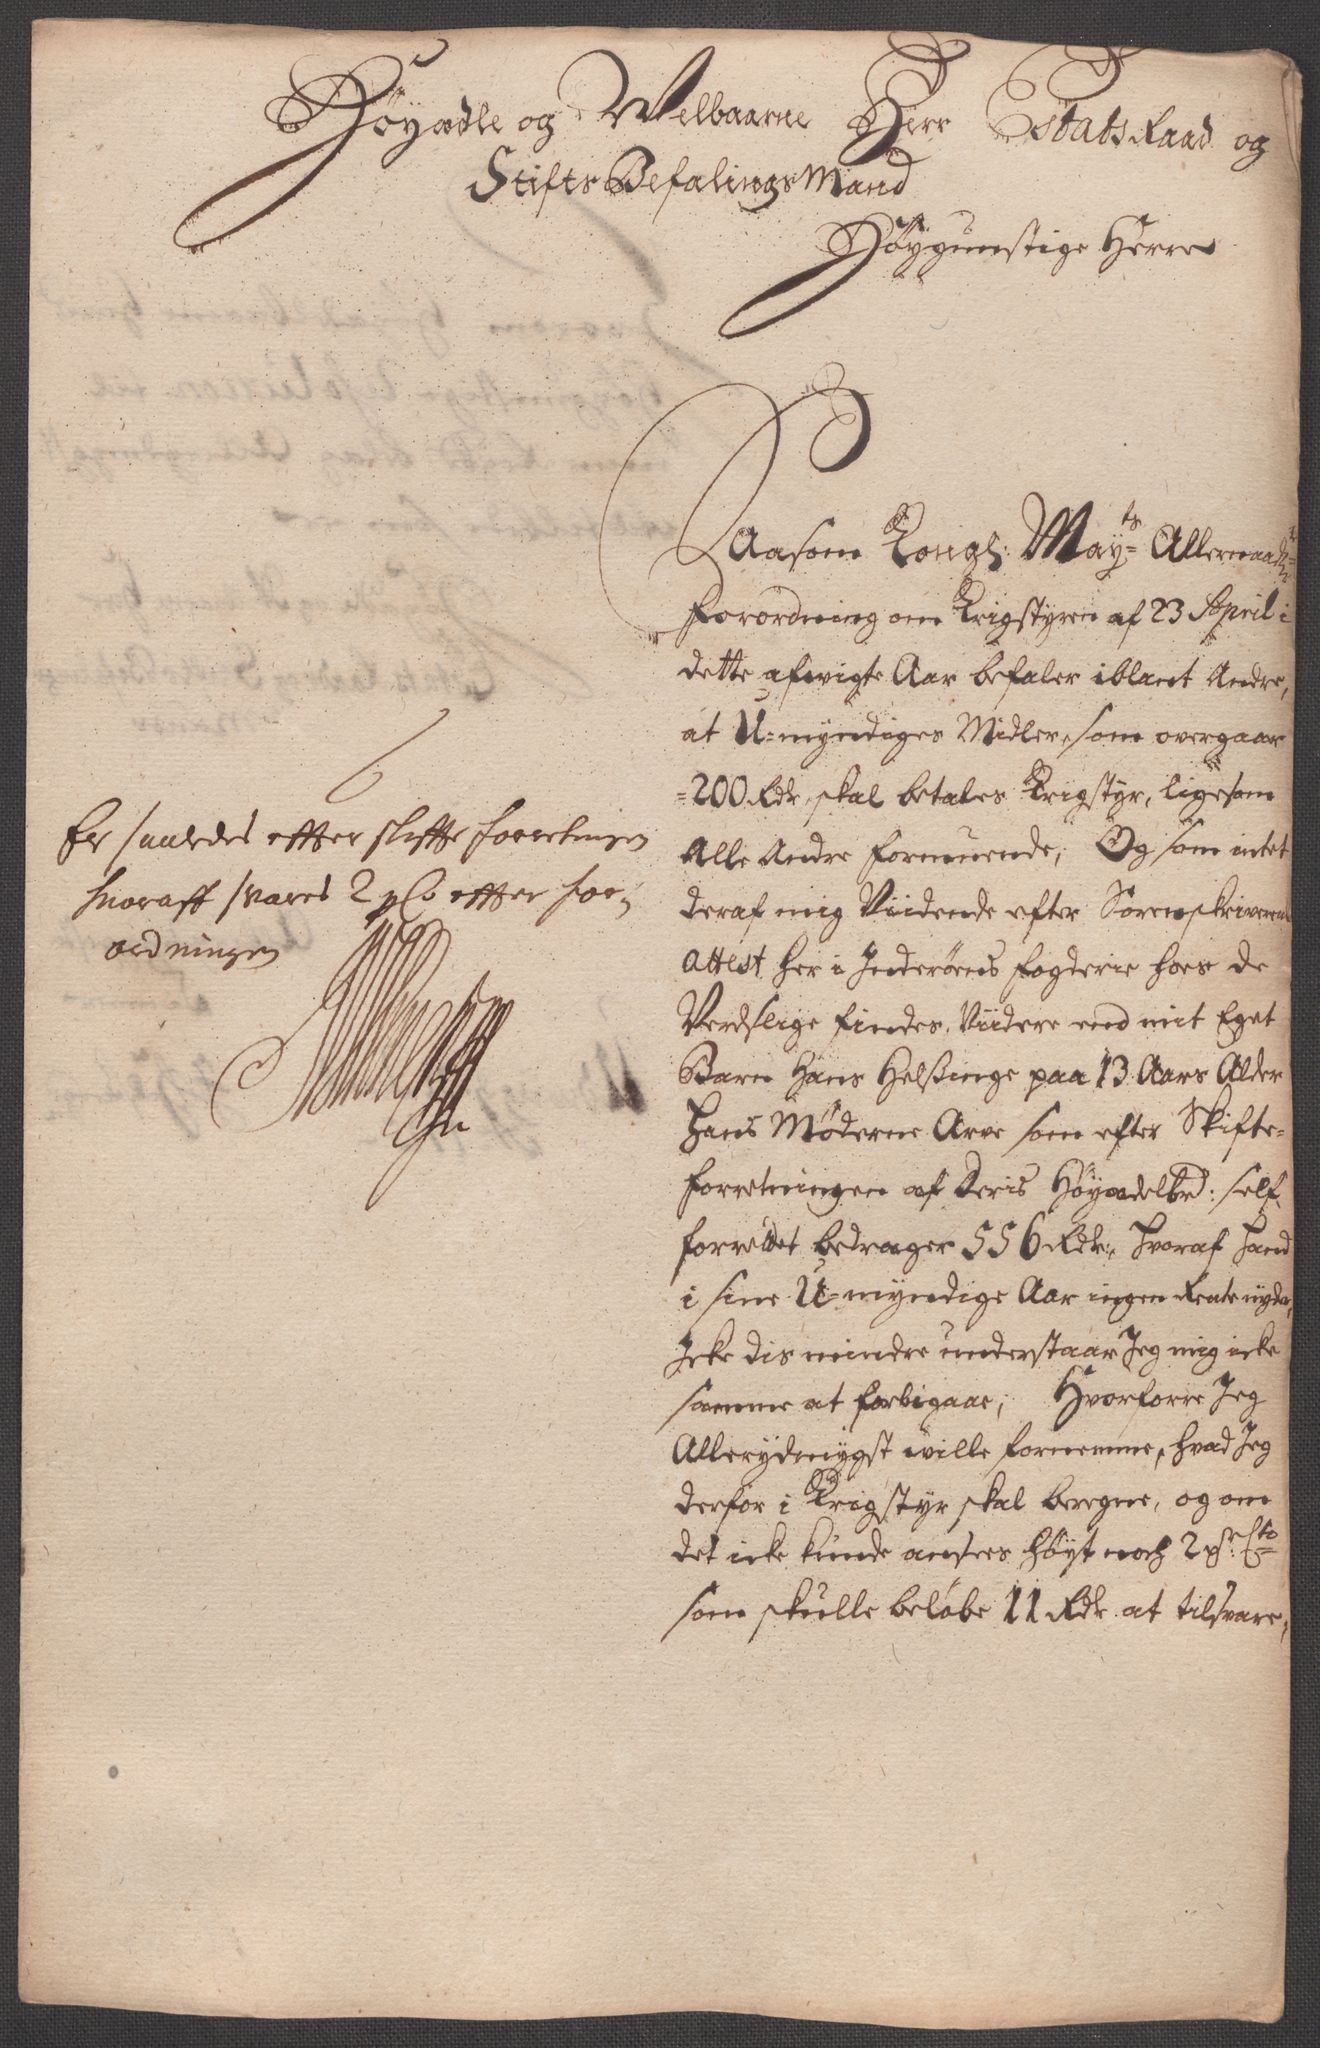 Höyædle og Welbaarne Herr Estats Raad og
Stifts Befalings Mand
Höÿgunstige Herre
Saasom Kongl: Maÿts Allernaadgste
forordning om Krigstÿren af 23 April i
dette afwigte Aar befaler iblant Andre,
at U-mÿndiges Midler, som overgaar
200 Rdr. skal betales Krigstÿr, ligesom
Alle Andre formuende; Og som intet
deraf mig Viidende efter Sorenskriverens
Attest her i Inderøens fogderie hoes de
Verdslige findes, Viidere end mit Eget
Barn Hans Helsinge paa 13 Aars Alder
Hans Møderne Arve som efter Skifte-
forretningen af Deris Höÿædelhed: self
forrettet bedrager 556 Rdr:, hvoraf hand
i sine U-mÿndige Aar ingen Rente nÿder,
Icke dis mindre understaar Jeg mig icke
samme at forbigaae; Hvorforre Jeg
Allerÿdmÿgst wille fornemme, hvad Jeg
derfor i Krigstÿr skal beregne, og om
det icke kunde ansees høÿst noch 2 pr. Cto
som skulle beløbe 11 Rdr. at tilsvare,
Er saaledes effter skiffte forretningen
hvoraff svares 2 pCto effter for-
ordningen